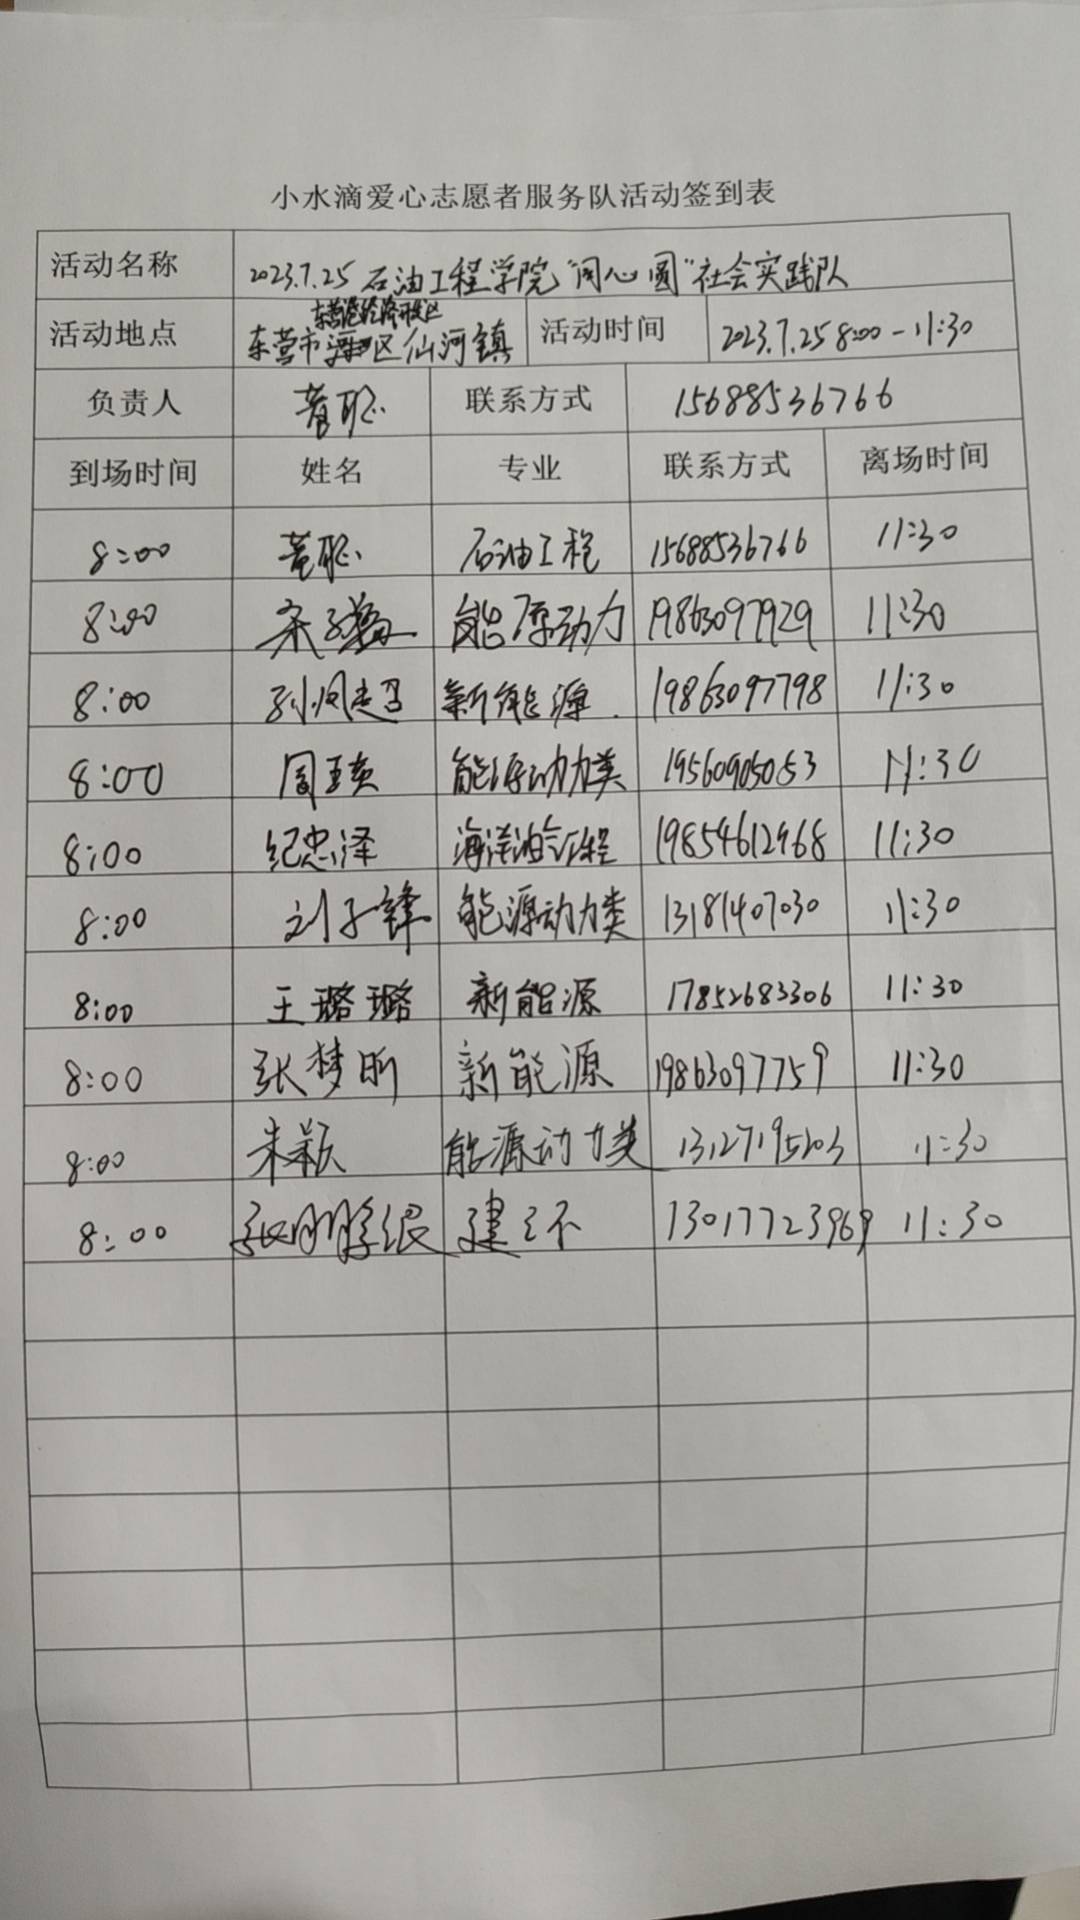 小水滴爱心志愿者服务队活动签到表
活动名称 2023.7.25 石油工程学院"同心圆"社会实践队
东营港经济开发区
活动地点 东营市 区仙河镇 活动时间 2023.7.25 8:00-11:30
负责人 董聪 联系方式 15688536766
到场时间 姓名 专业 联系方式 离场时间
8:00 董聪 石油工程 15688536766 11:30
8:00 能源动力 19863097929 11:30
8:00 孙凤超 新能源 19863097798 11:30
8:00 能源动力类 19560905053 11:30
8:00 纪忠泽 海洋油气工程 19854612468 11:30
8:00 刘子锋 能源动力类 13181407030 11:30
8:00 王璐璐 新能源 17852683306 11:30
8:00 张梦昕 新能源 19863097759 11:30
8:00 朱颖 能源动力类 11:30
8:00 建环 13017723969 11:30